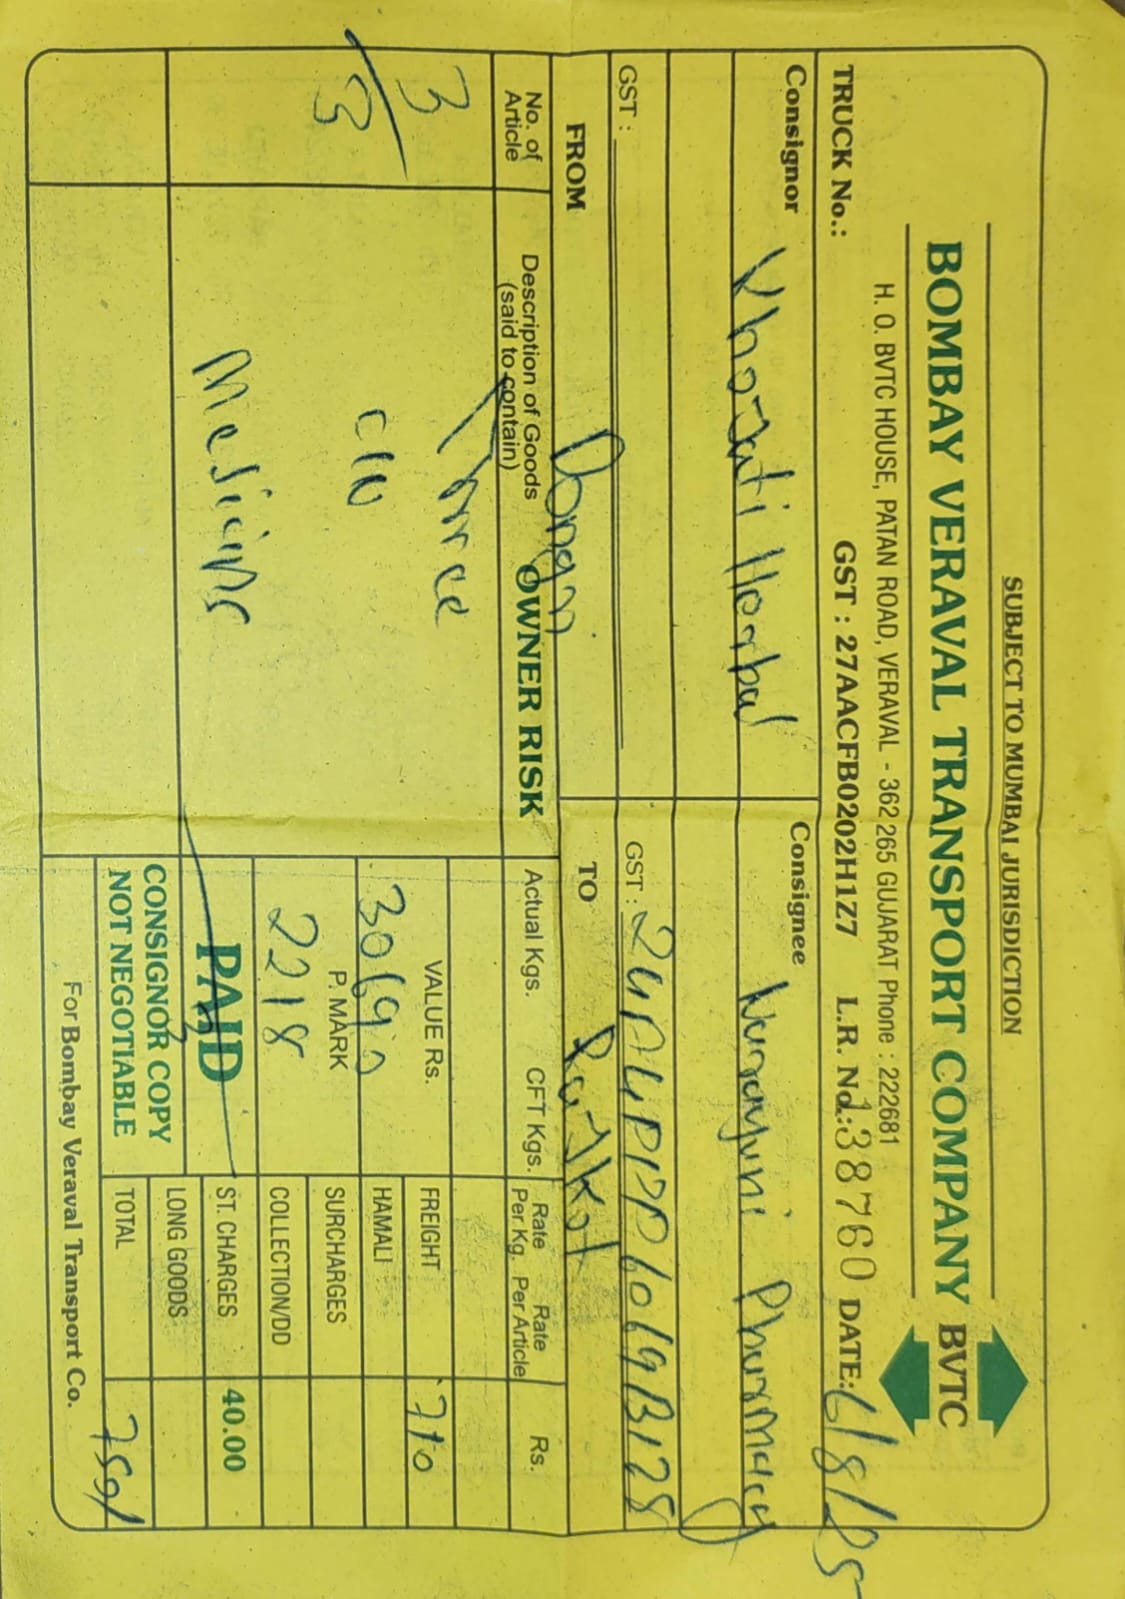 SUBJECT TO MUMBAI JURISDICTION
BOMBAY VERAVAL TRANSPORT COMPANY BVTC
H. O. BVTC HOUSE, PATAN ROAD, VERAVAL - 362 265 GUJARAT Phone : 222681
TRUCK No.: GST : 27AACFB0202H1Z7 L.R. No.: 138760 DATE: 6/8/25
Consignor Herbal
Consignee Narayani Pharmacy
GST :
GST :
FROM Dongri TO Rajkot
No. of Article
Description of Goods (said to contain)
OWNER RISK
Actual Kgs. CFT Kgs. Rate Per Kg. Rate Per Article Rs.
3 Three
3 C/N
Medicine
VALUE Rs.
P. MARK
2218
PAID
CONSIGNOR COPY
NOT NEGOTIABLE
FREIGHT 710
HAMALI
SURCHARGES
COLLECTION/DD
ST. CHARGES 40.00
LONG GOODS
TOTAL 750/
For Bombay Veraval Transport Co.